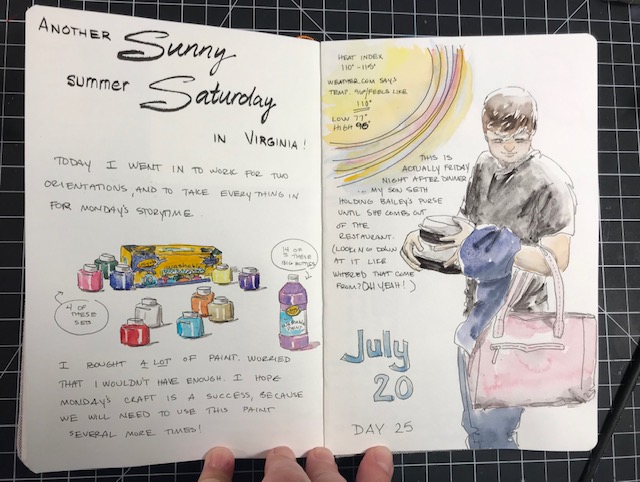 ANOTHER Sunny
summer Saturday
IN VIRGINIA!
TODAY I WENT IN TO WORK FOR TWO
ORIENTATIONS, AND TO TAKE EVERYTHING IN
FOR MONDAY'S STORYTIME.
4 OF
THESE
SETS
14 OF
THESE
BIG BOTTLES
I BOUGHT A LOT OF PAINT. WORRIED
THAT I WOULDN'T HAVE ENOUGH. I HOPE
MONDAY'S CRAFT IS A SUCCESS, BECAUSE
WE WILL NEED TO USE THIS PAINT
SEVERAL MORE TIMES!
HEAT INDEX
110°-115°
WEATHER.COM SAYS
TEMP. 96°/FEELS LIKE
110°
LOW 77°
HIGH 98°
THIS IS
ACTUALLY FRIDAY
NIGHT AFTER DINNER
... MY SON SETH
HOLDING BAILEY'S PURSE
UNTIL SHE COMES OUT
OF THE
RESTAURANT.
(LOOKING DOWN
AT IT LIKE
WHERE'D THAT COME
FROM? OH YEAH!)
July
20
DAY 25